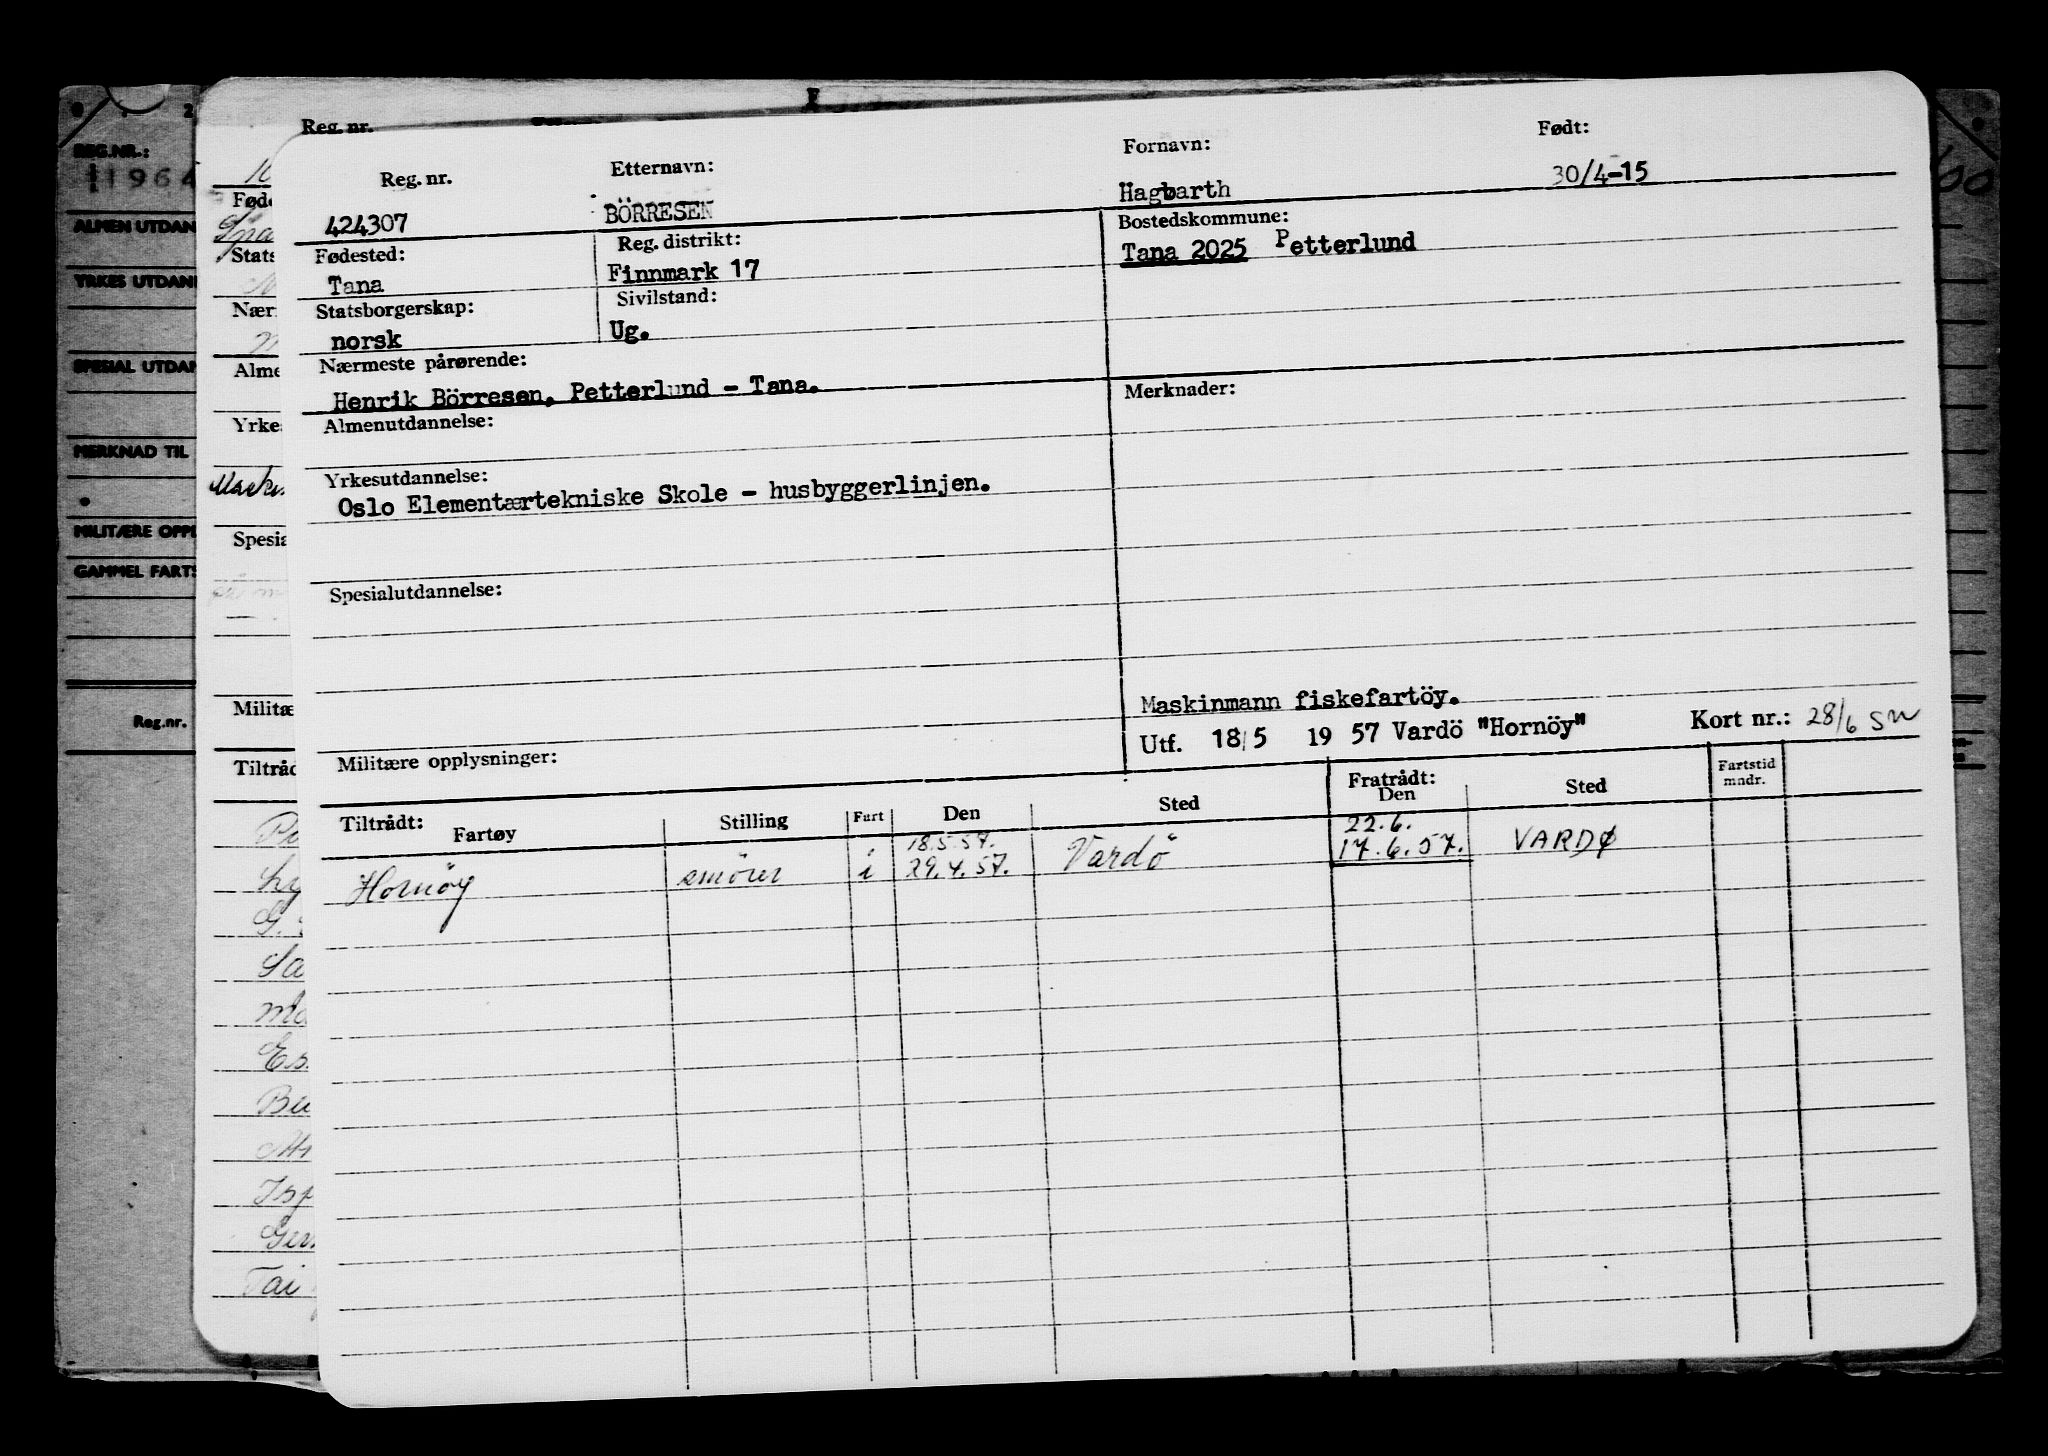 Reg. nr.
Reg. nr.
424307
Etternavn:
BÖRRESEN
Fornavn:
Hagbarth
Født:
30/4-15
Fødested:
Tana
Reg. distrikt:
Finnmark 17
Bostedskommune:
Tana 2025 Petterlund
Statsborgerskap:
norsk
Sivilstand:
Ug.
Nærmeste pårørende:
Henrik Börresen, Petterlund - Tana.
Merknader:
Almenutdannelse:
Yrkesutdannelse:
Oslo Elementærtekniske Skole - husbyggerlinjen.
Spesialutdannelse:
Maskinmann fiskefartöy.
Utf. 18/5 19 57 Vardö "Hornöy" Kort nr.: 28/6 SW
Militære opplysninger:
Tiltrådt:
Fartøy Stilling Fart Den Sted
Fratrådt:
Den Sted Fartstid
mndr.
18.5.57. 22.6.
Hornöy smörer i 29.4.57. Vardö 17.6.57. VARDØ
REG.NR.:
11964
ALMEN UTDAN
YRKES UTDAN
SPESIAL UTDAN
MERKNAD TIL
MILITÆRE OPP
GAMMEL FARTS
Reg.nr.
Fød
Stats
Nær
Alme
Yrkes
Maski
Spesia
Militæ
Tiltråd